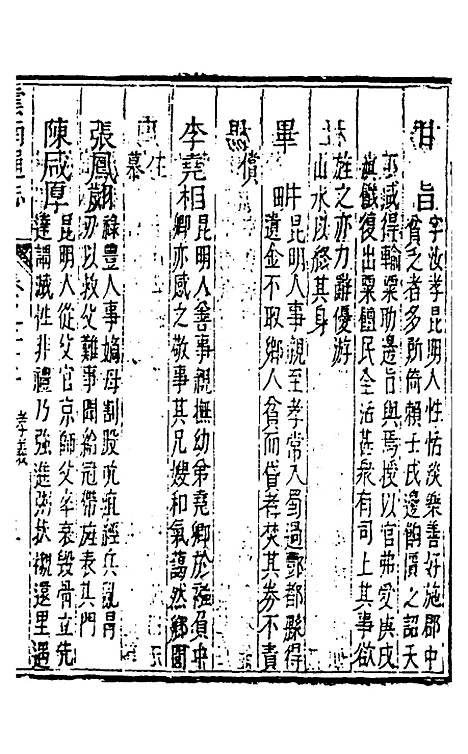 甘旨 字汝孝昆明人性恬淡樂善好施郡中
貧乏者多所倚賴壬戌邊餉匱乏詔天
郡咸得輸粟助邊旨與焉授以官弗受庚戌
歲饑復出粟饘民全活甚衆有司上其事欲
旌之亦力辭優游
山水以終其身
畢昇 昆明人事親至孝常入蜀過酆都縣得
遺金不取鄉人貧而貸者焚其券不責
償
李堯相 昆明人善事親撫幼弟堯卿於襁負中
卿亦感之敬事其兄嫂和氣藹然鄉閭
張鳳翽 祿豐人事嫡母割股吮疽經兵亂冒
刃以救父難事聞給冠帶旌表其門
陳咸厚 昆明人從父官京師父卒哀毀骨立先
達謂滅性非禮乃強進粥扶櫬還里遇
孝義